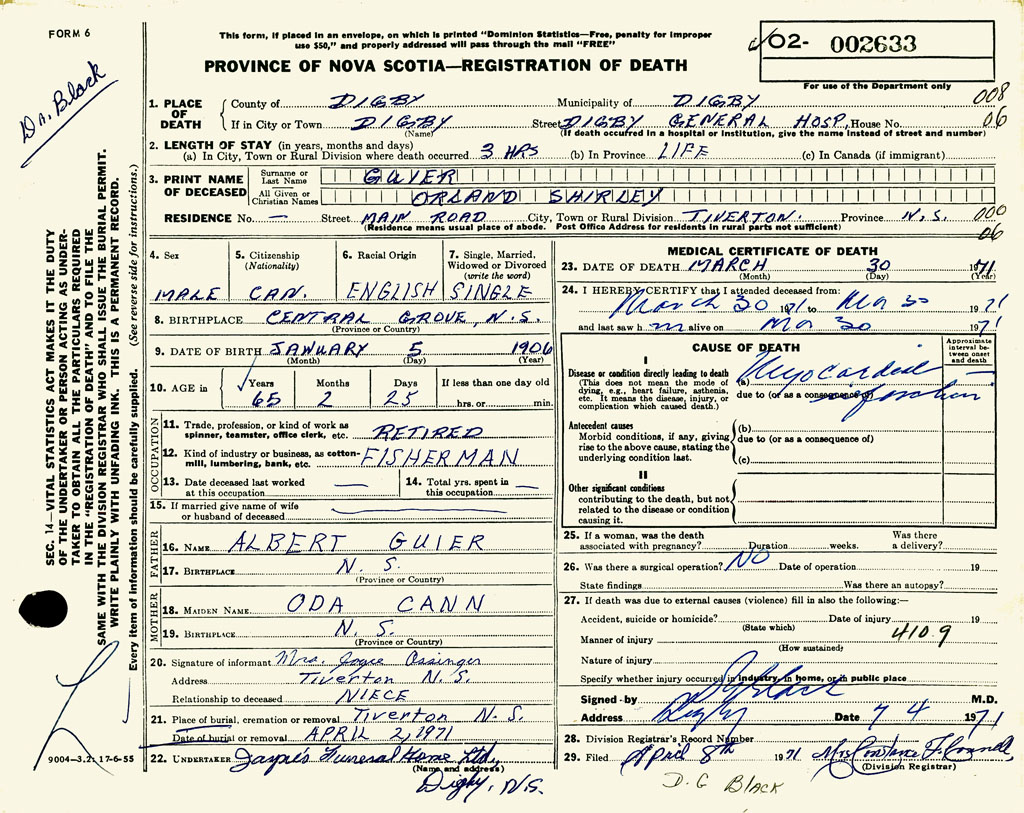 FORM 6
This form, if placed in an envelope, on which is printed "Dominion Statistics—Free, penalty for improper
use $50," and properly addressed will pass through the mail "FREE"
O2- 002633
PROVINCE OF NOVA SCOTIA—REGISTRATION OF DEATH
For use of the Department only
Dr. Black
1. PLACE OF DEATH
County of DIGBY Municipality of DIGBY 008
If in City or Town DIGBY Street DIGBY GENERAL HOSP, House No. 06
(Name) (If death occurred in a hospital or institution, give the name instead of street and number)
2. LENGTH OF STAY (in years, months and days)
(a) In City, Town or Rural Division where death occurred 3 HRS (b) In Province LIFE (c) In Canada (if immigrant)
3. PRINT NAME OF DECEASED
Surname or Last Name GUIER
All Given or Christian Names ORLAND SHIRLEY
RESIDENCE No. — Street MAIN ROAD City, Town or Rural Division TIVERTON. Province N.S. 000
(Residence means usual place of abode. Post Office Address for residents in rural parts not sufficient) 06
SEC. 14—VITAL STATISTICS ACT MAKES IT THE DUTY
OF THE UNDERTAKER OR PERSON ACTING AS UNDER-
TAKER TO OBTAIN ALL THE PARTICULARS REQUIRED
IN THE "REGISTRATION OF DEATH" AND TO FILE THE
SAME WITH THE DIVISION REGISTRAR WHO SHALL ISSUE THE BURIAL PERMIT.
WRITE PLAINLY WITH UNFADING INK. THIS IS A PERMANENT RECORD.
Every item of information should be carefully supplied. (See reverse side for instructions.)
4. Sex
MALE
5. Citizenship
(Nationality)
CAN.
6. Racial Origin
ENGLISH
7. Single, Married,
Widowed or Divorced
(write the word)
SINGLE
8. BIRTHPLACE CENTRAL GROVE, N.S.
(Province or Country)
9. DATE OF BIRTH JANUARY 5 1906
(Month) (Day) (Year)
10. AGE in Years Months Days If less than one day old
65 2 25 hrs. or min.
OCCUPATION
11. Trade, profession, or kind of work as
spinner, teamster, office clerk, etc. RETIRED
12. Kind of industry or business, as cotton-
mill, lumbering, bank, etc. FISHERMAN
13. Date deceased last worked
at this occupation —
14. Total yrs. spent in
this occupation —
15. If married give name of wife
or husband of deceased
FATHER
16. NAME ALBERT GUIER
17. BIRTHPLACE N. S.
(Province or Country)
MOTHER
18. MAIDEN NAME ODA CANN
19. BIRTHPLACE N. S.
(Province or Country)
20. Signature of informant Mrs. Joyce Ossinger
Address Tiverton N.S.
Relationship to deceased NIECE
21. Place of burial, cremation or removal Tiverton N.S.
Date of burial or removal APRIL 2, 1971
22. UNDERTAKER Jayne's Funeral Home Ltd,
(Name and address)
Digby, N.S.
9004—3.2: 17-6-55
MEDICAL CERTIFICATE OF DEATH
23. DATE OF DEATH MARCH 30 1971
(Month) (Day) (Year)
24. I HEREBY CERTIFY that I attended deceased from:
March 30 1971 to Mar 30 1971
and last saw h m alive on Mar 30 1971
CAUSE OF DEATH
Approximate
interval be-
tween onset
and death
I
Disease or condition directly leading to death
(This does not mean the mode of
dying, e.g., heart failure, asthenia,
etc. It means the disease, injury, or
complication which caused death.)
(a) Myocardial
due to (or as a consequence of) infarction
Antecedent causes
Morbid conditions, if any, giving
rise to the above cause, stating the
underlying condition last.
(b)
due to (or as a consequence of)
(c)
II
Other significant conditions
contributing to the death, but not
related to the disease or condition
causing it.
25. If a woman, was the death
associated with pregnancy? Duration weeks. Was there
a delivery?
26. Was there a surgical operation? NO Date of operation 19
State findings Was there an autopsy?
27. If death was due to external causes (violence) fill in also the following:—
Accident, suicide or homicide? Date of injury 19
(State which)
Manner of injury 410.9
(How sustained)
Nature of injury
Specify whether injury occurred in industry, in home, or in public place
Signed by D G Black M.D.
Address Digby Date 7 4 1971
28. Division Registrar's Record Number
29. Filed April 8th 1971 Mrs Constance F. Connell
(Division Registrar)
D. G BLACK